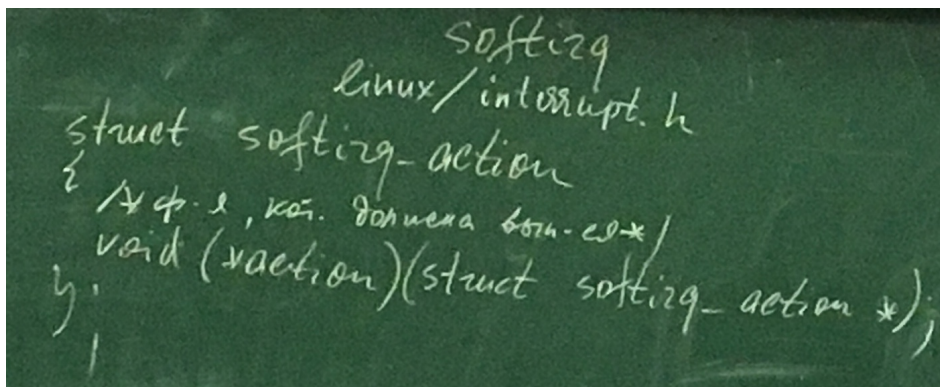 softirq
linux/interrupt.h
struct softirq_action
{
/* ф-я, кот. должна вып-ся */
void (*action)(struct softirq_action *);
};